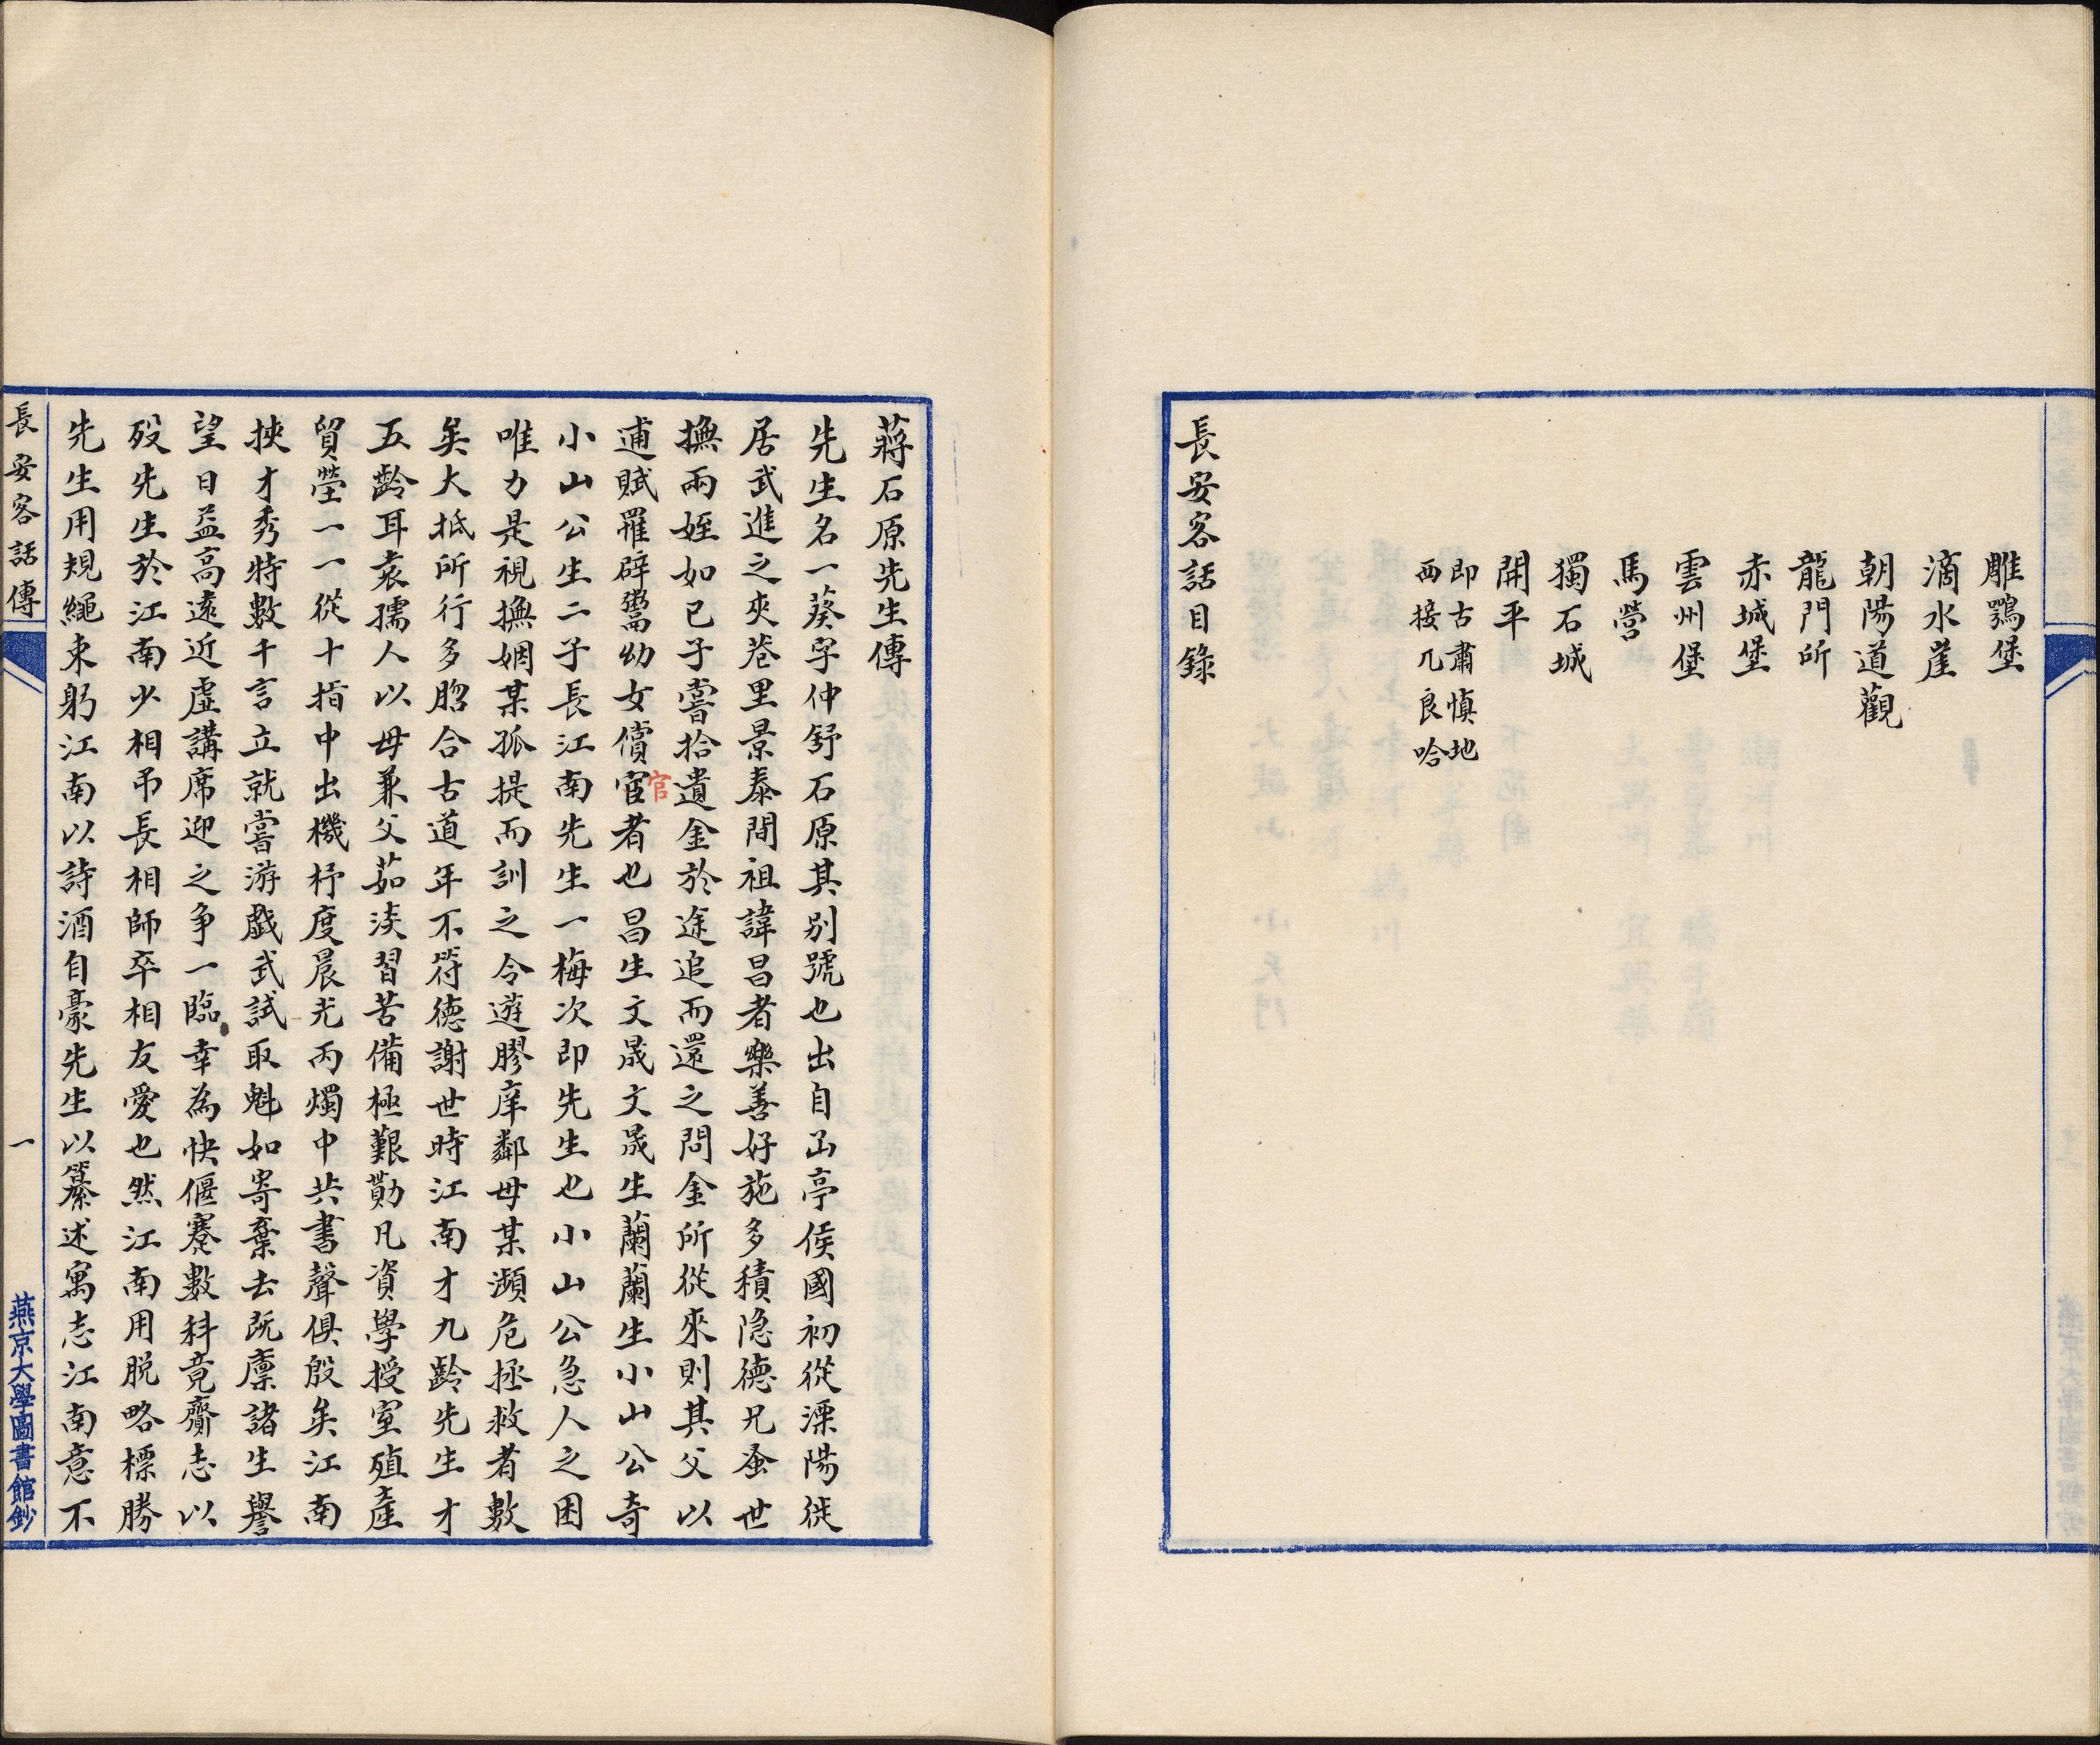 雕鶚堡
滴水崖
朝陽道觀
龍門所
赤城堡
雲州堡
馬營
獨石城
開平
即古肅慎地
西接兀良哈
長安客話目錄
蔣石原先生傳
先生名一葵字仲舒石原其別號也出自函亭侯國初從溧陽徙
居武進之夾巷里景泰間祖諱昌者樂善好施多積隐德兄蚤世
撫兩姪如已子嘗拾遺金於途追而還之問金所從來則其父以
逋賦罹辟鬻幼女償宦者也昌生文晟文晟生蘭蘭生小山公奇
官
小山公生二子長江南先生一梅次即先生也小山公急人之困
唯力是視撫姻某孤提而訓之令遊膠庠鄰毋某瀕危拯救者數
矣大抵所行多脗合古道年不符德謝世時江南才九齡先生才
五齡耳袁孺人以母兼父茹淡習苦備極艱勩凡資學授室殖產
貿塋一一從十指中出機杼度晨光丙燭中共書聲俱殷矣江南
挾才秀特數千言立就嘗游戲武試取魁如寄棄去既廪諸生譽
望日益高遠近虛講席迎之争一臨幸為快偃蹇數科竟齎志以
歿先生於江南少相弔長相師卒相友愛也然江南用脱略標勝
先生用規繩束躬江南以詩酒自豪先生以纂述寓志江南意不
長安客話傳
一
燕京大學圖書館鈔